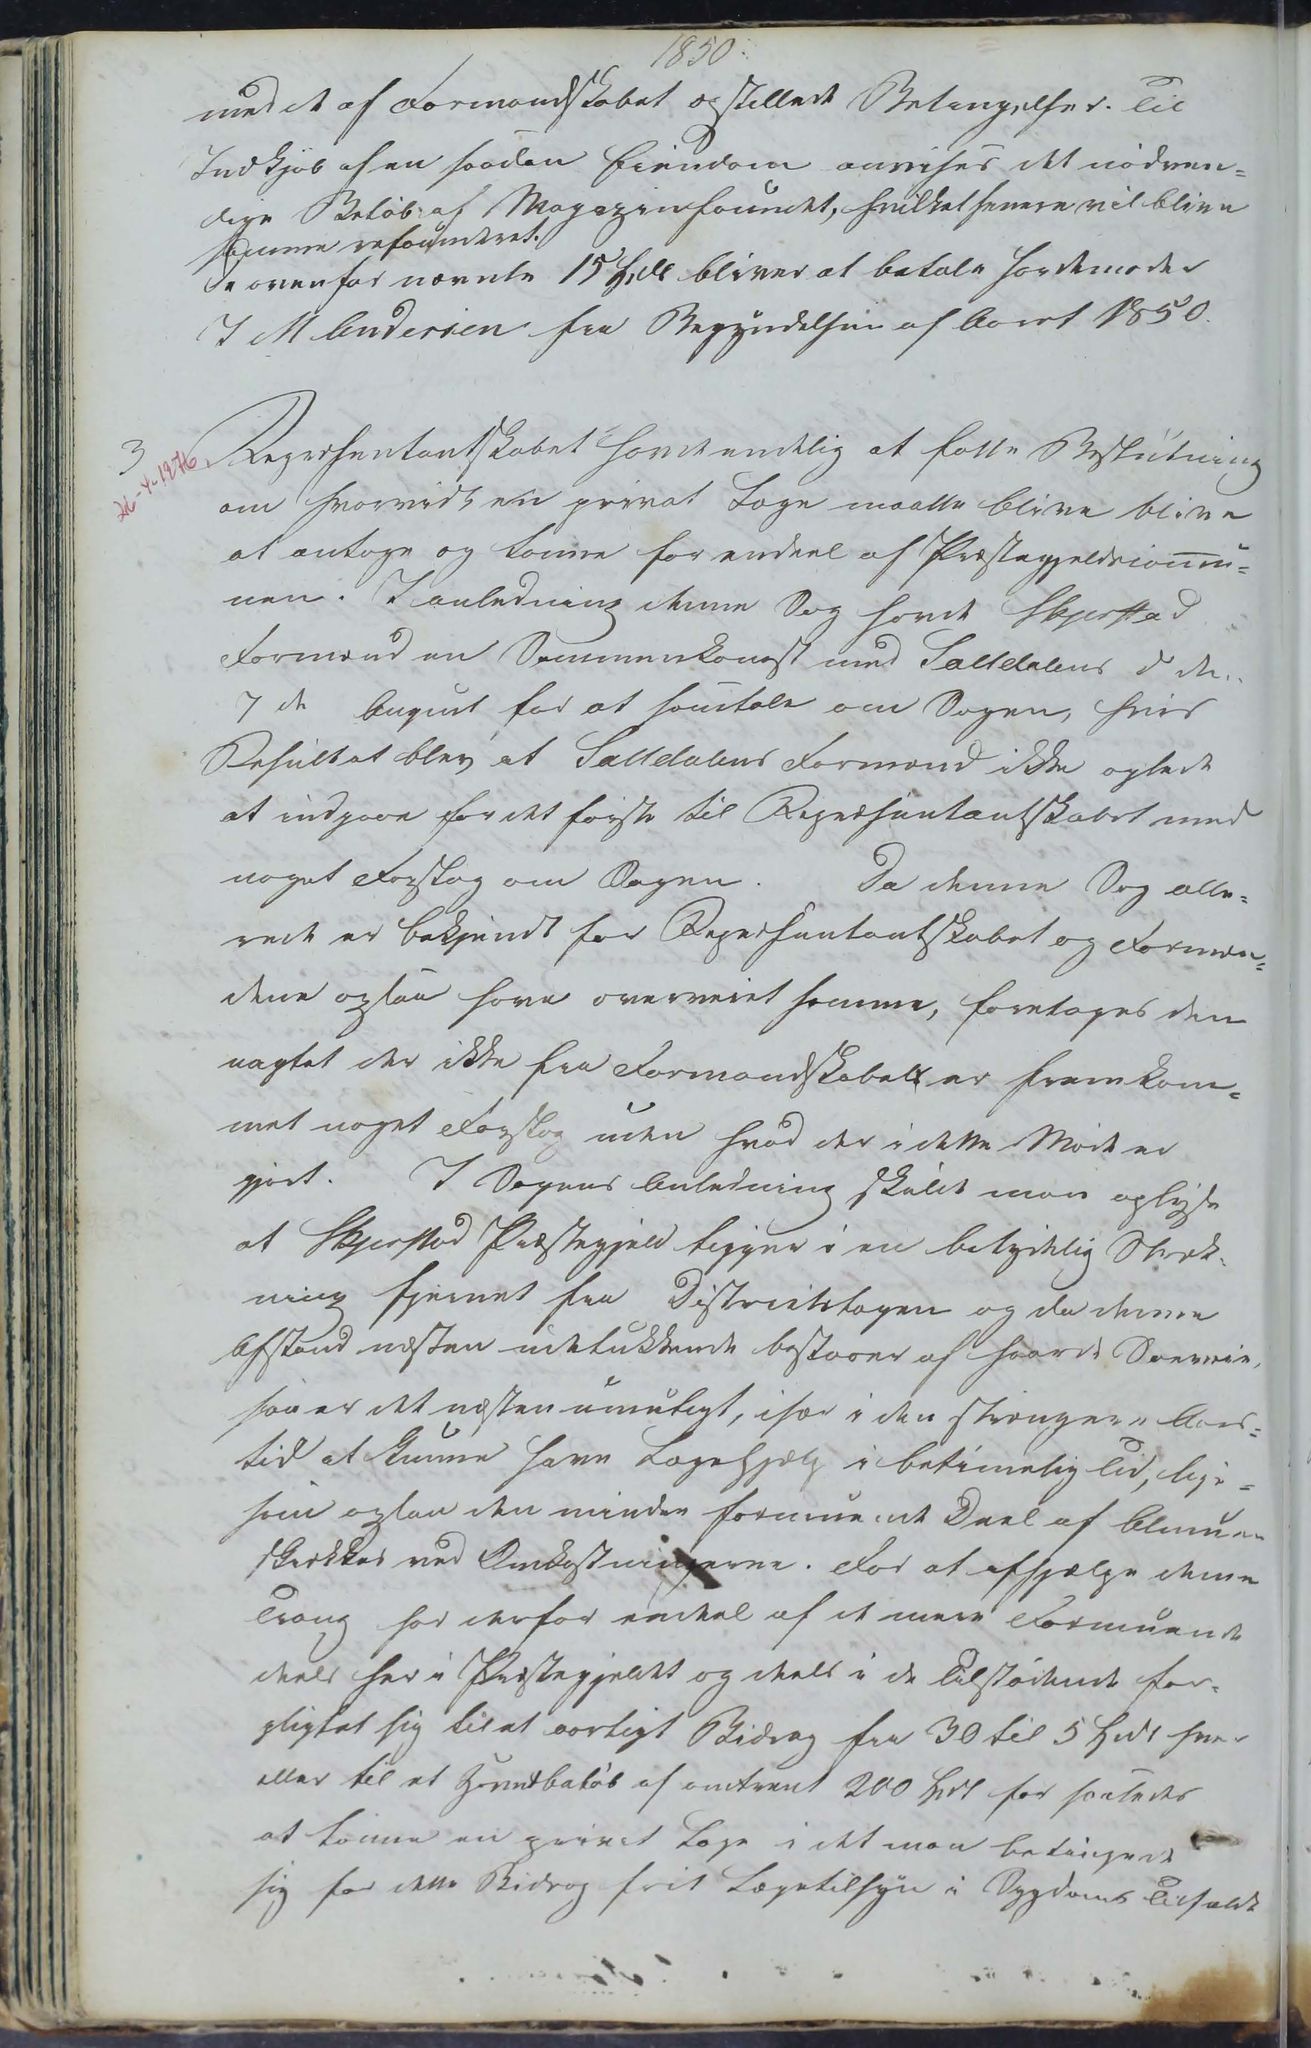 1850.
med de af Formandskabet opstillede Betingelser. Til
Indkjøb af en saadan Eiendom anvises det nødven=
dige Beløb af Magazinfoundet, hvilket senere vil blive
samme refounderet.
De ovenfor nævnte 15 Spd bliver at betale Jordemoder
J M Andersen fra Begyndelsen af Aaret 1850.
3
24-4-1976
Repræsentantskabet havde endelig at fatte Beslutning
om hvorvidt en privat Læge maatte blive blive
at antage og lønne for endeel af Præstegjeldscommu=
nen. I anledning denne Sag havde Skjerstad
Formænd en Sammenkomst med Saltdalens d den
7de August for at samtale om Sagen, hvis
Resultat blev, at Saltdalens Formænd ikke agtede
at indgaae for det første til Repræsentantskabet med
noget Forslag om Sagen. Da denne Sag alle=
rede er bekjendt for Repræsentantskabet og Formæn=
dene ogsaa have overveiet samme, foretages den
uagtet der ikke fra Formandskabet er fremkom=
met noget Forslag uden hvad der i dette Møde er
gjort. I Sagens Anledning skulde man oplyse
at Skjerstad Præstegjeld ligger i en betydelig Stræk=
ning fjernet fra Districtslægen og da denne
Afstand næsten udelukkende bestaaer af haarde Søeveie,
saa er det næsten umuligt, især i den strængere Aars=
tid at kunne have Lægehjælp i betimelig Tid, lige=
som ogsaa den mindre formuende Deel af Almuen
skrækkes ved Omkostningerne. For at afhjælpe denne
Trang har derfor endeel af de mere Formuende
deels her i Præstegjeldet og deels i de Tilstødende for=
pligtet sig til at aarligt Bidrag fra 30 til 5 Spd hver
eller til et Hovedbeløb af omtrent 200 Spd for saaledes
at lønne en privat Læge i det man betingede
sig for dette Bidrag frit Lægetilsyn i Sygdoms Tilfælde